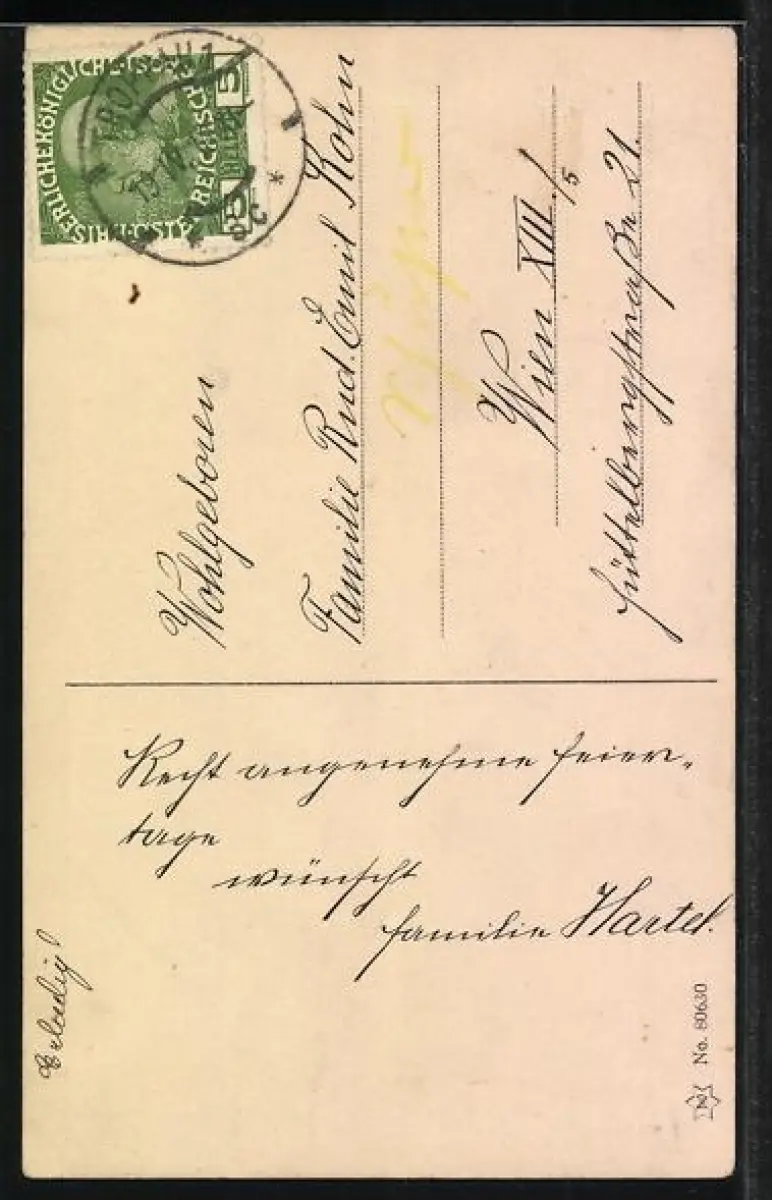 KAISERLICHE KÖNIGLICHE ÖSTERREICHISCHE POST
5 5
TROPPAU 1
Wohlgeboren
Familie Rud. Emil Kohn
Wien XIII./5
Hüttelbergstraße 21.
Recht angenehme Feier-
tage
wünscht
Familie Hartel.
No. 80630